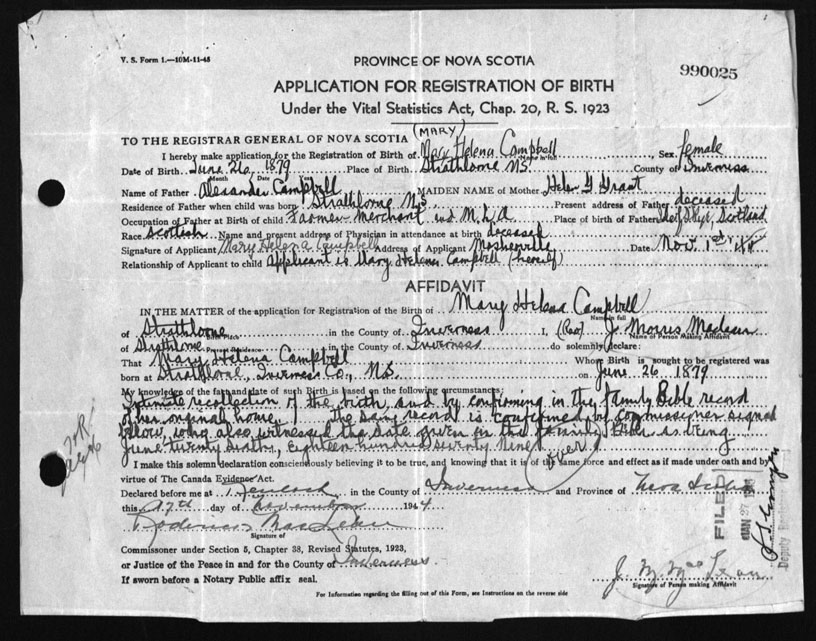 V. S. Form 1.—10M-11-43
PROVINCE OF NOVA SCOTIA
990025
APPLICATION FOR REGISTRATION OF BIRTH
Under the Vital Statistics Act, Chap. 20, R. S. 1923
(MARY)
TO THE REGISTRAR GENERAL OF NOVA SCOTIA
I hereby make application for the Registration of Birth of Mary Helena Campbell, Sex female
Name in full
Date of Birth June 26 1879 Place of Birth Strathlorne N.S. County of Inverness
Month Date
Name of Father Alexander Campbell MAIDEN NAME of Mother Helen G Grant
Residence of Father when child was born Strathlorne N.S. Present address of Father deceased
Occupation of Father at Birth of child Farmer Merchant and M.L.A Place of birth of Father Isle of Skye, Scotland
Race Scottish Name and present address of Physician in attendance at birth deceased
Signature of Applicant Mary Helena Campbell Address of Applicant Date Nov. 1st
Relationship of Applicant to child Applicant is Mary Helena Campbell (herself)
AFFIDAVIT
IN THE MATTER of the application for Registration of the Birth of Mary Helena Campbell
Name in full
of Strathlorne in the County of Inverness I, (Rev) J. Morris MacLean
Birth Place Name of Person Making Affidavit
of Strathlorne in the County of Inverness do solemnly declare:
Present Residence
That Mary Helena Campbell Whose Birth is sought to be registered was
born at Inverness Co., N.S. on June 26 1879
My knowledge of the fact and date of such Birth is based on the following circumstances:
recollection of the birth, and by confirming in the family Bible record
of her original home. The said record is confirmed by commissioner signed
below, who also witnessed the date given in the family Bible as being
June twenty sixth, eighteen hundred seventy nine (over)
I make this solemn declaration conscienciously believing it to be true, and knowing that it is of the same force and effect as if made under oath and by
virtue of The Canada Evidence Act.
Declared before me at in the County of Inverness and Province of Nova Scotia
this 17th day of November 1944
Signature of
Commissioner under Section 5, Chapter 38, Revised Statutes, 1923,
or Justice of the Peace in and for the County of Inverness
If sworn before a Notary Public affix seal.
J. M. MacLean
Signature of Person making Affidavit
For Information regarding the filling out of this Form, see Instructions on the reverse side
FILED
JAN 27
Deputy